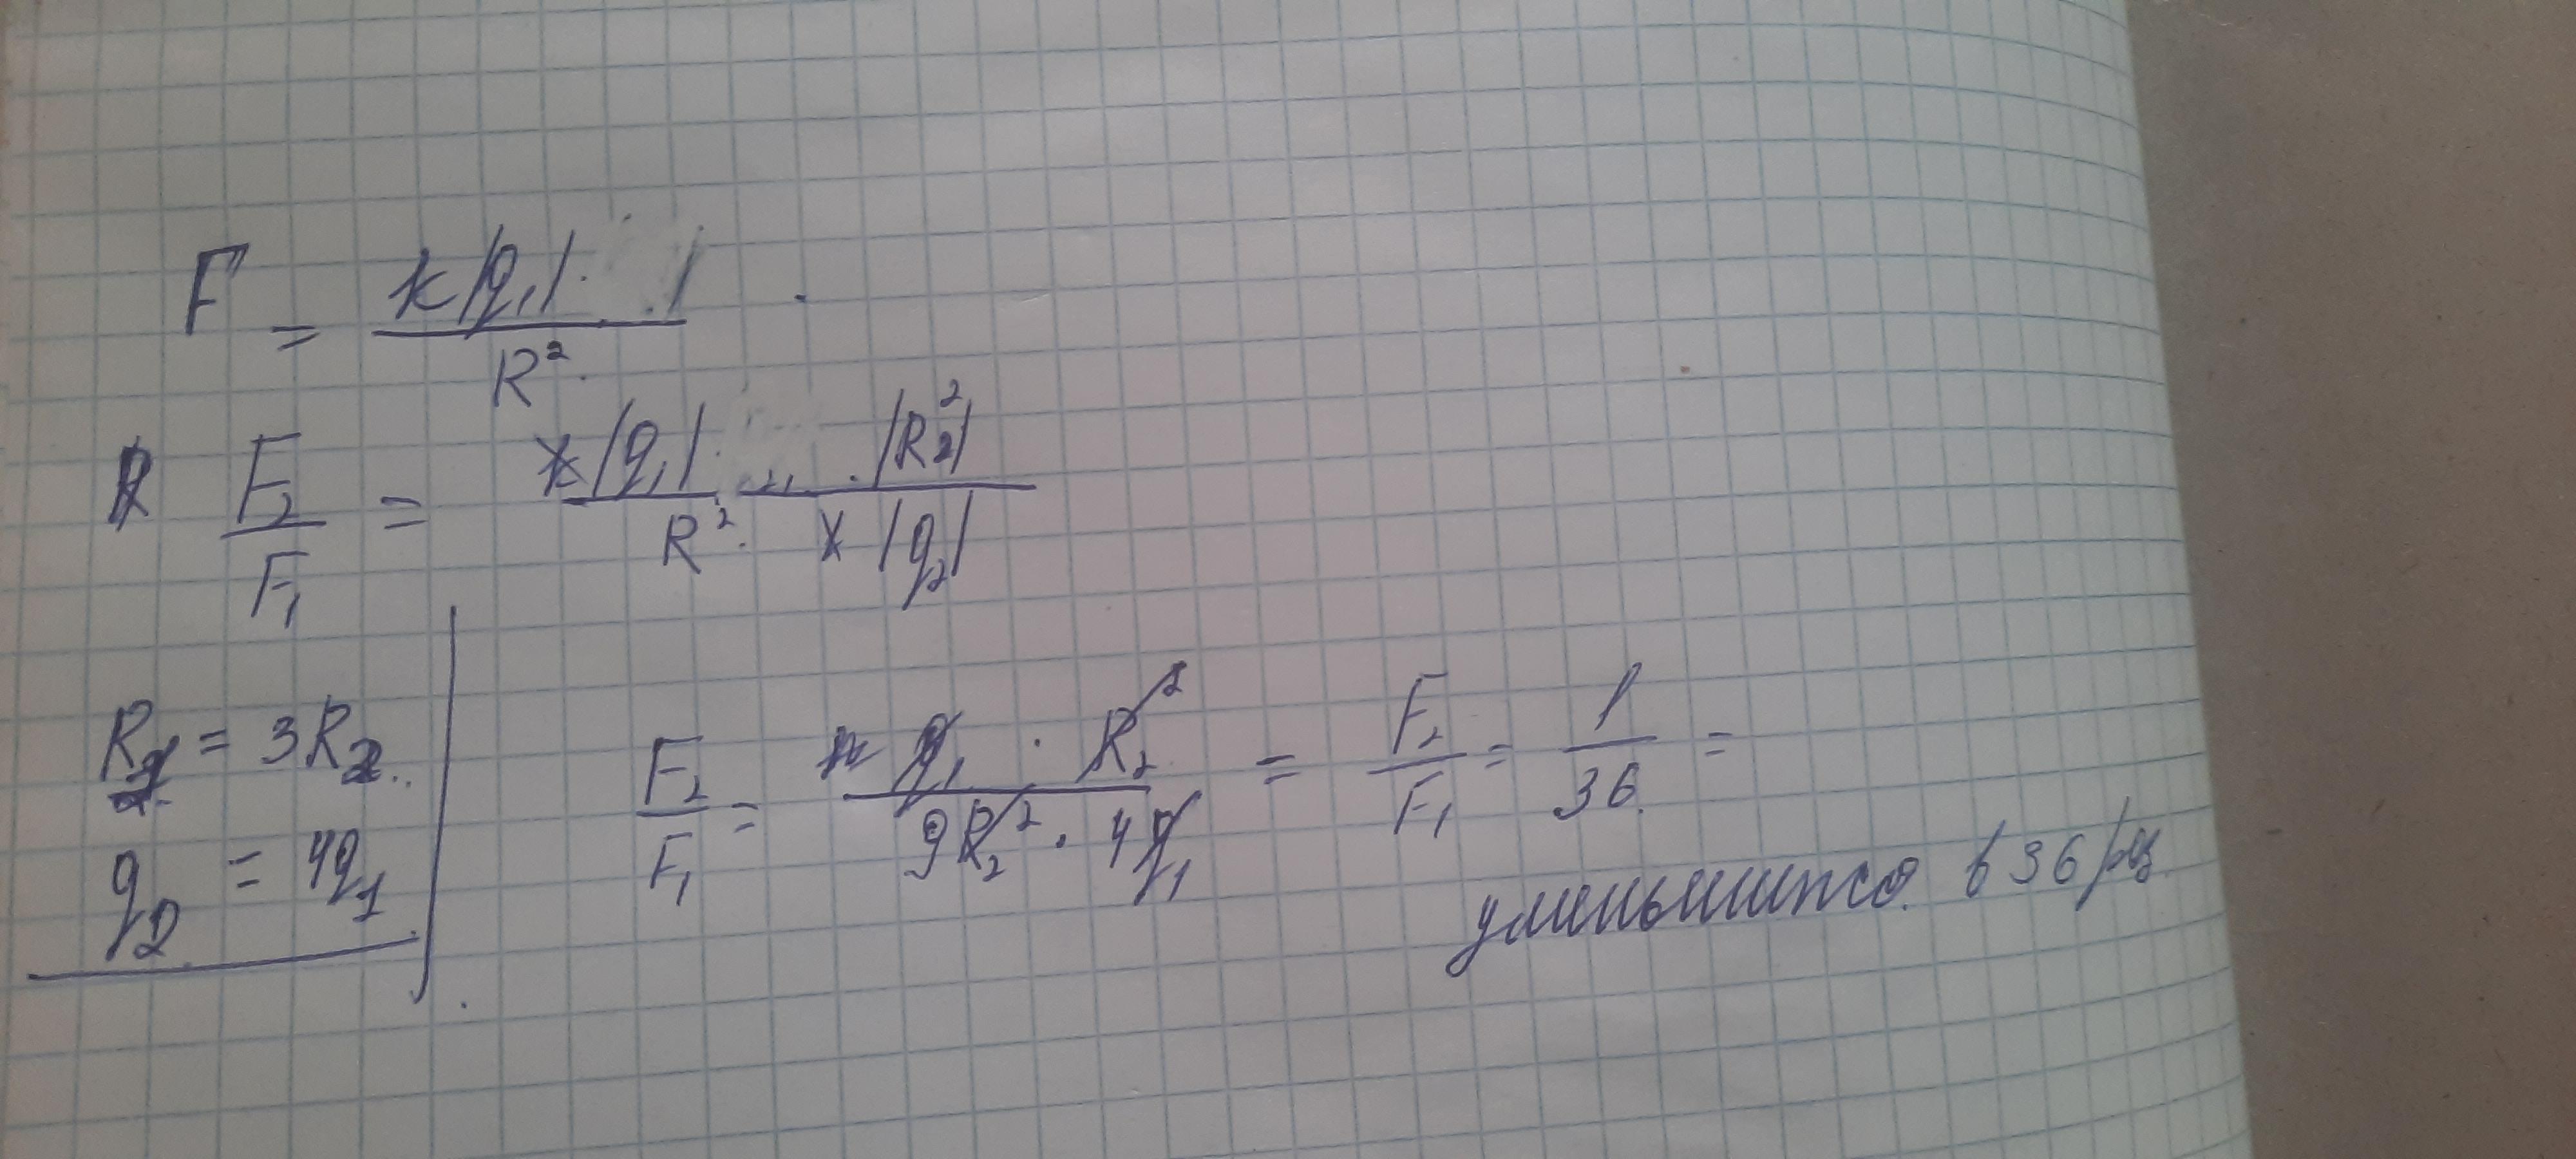 F = k|q₁|· |/R².
k F₂/F₁ = k|q₁|· . |R₂²|/R²· k |q₂|
R₁ = 3R₂.
q₂ = 4q₁
F₂/F₁ = q₁ · R₂²/9R₂² · 4q₁ = F₂/F₁ = 1/36. =
уменьшится в 36 раз